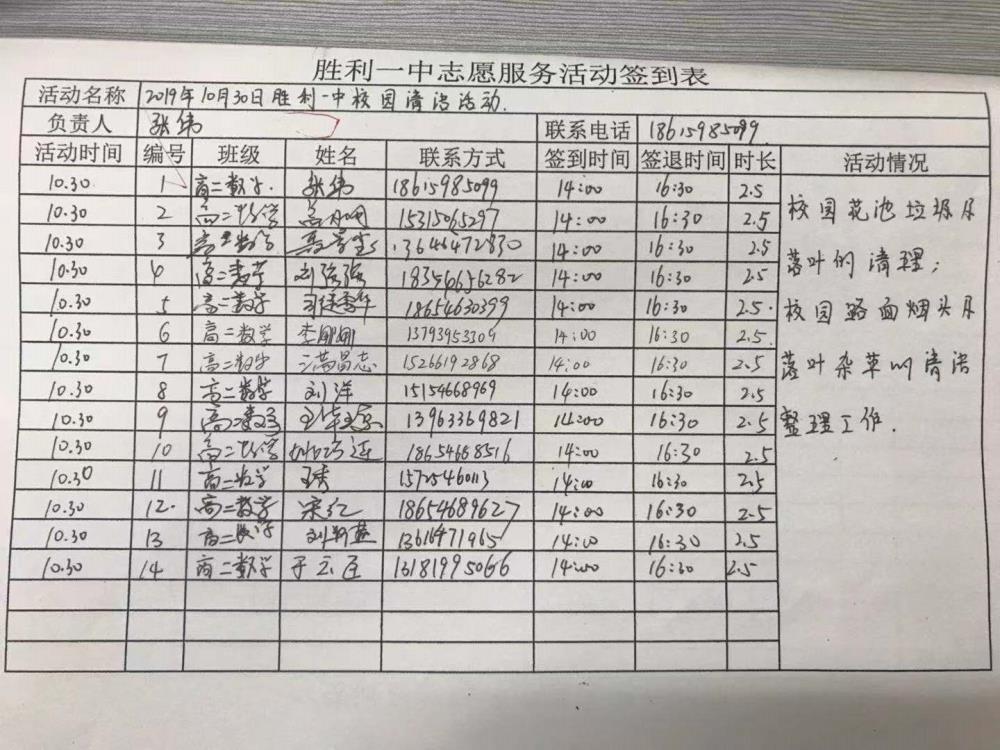 胜利一中志愿服务活动签到表
活动名称 2019年10月30日胜利一中校园清洁活动.
负责人 张伟 联系电话 18615985099
活动时间 编号 班级 姓名 联系方式 签到时间 签退时间 时长 活动情况
10.30 1 高二数学. 张伟 18615985099 14:00 16:30 2.5
10.30 2 高二数学 15315065297 14:00 16:30 2.5 校园花池垃圾及
10.30 3 高二数学 13646472830 14:00 16:30 2.5
10.30 4 高二数学 刘强强 18354656282 14:00 16:30 2.5 落叶的清理;
10.30 5 高二数学 18654630399 14:00 16:30 2.5. 校园路面烟头及
10.30 6 高二数学 李刚刚 13793953309 14:00 16:30 2.5.
10.30 7 高二数学 满昌志 15266192868 14:00 16:30 2.5 落叶杂草的清洁
10.30 8 高二数学 刘洋 15154668969 14:00 16:30 2.5
10.30 9 高二数学 13963369821 14:00 16:30 2.5 整理工作.
10.30 10 高二数学 18654668516 14:00 16:30 2.5
10.30 11 高二数学 14:00 16:30 2.5
10.30 12. 高二数学 宋红 18654689627 14:00 16:30 2.5
10.30 13 高二数学 13616471965 14:00 16:30 2.5
10.30 14 高二数学 13181995066 14:00 16:30 2.5